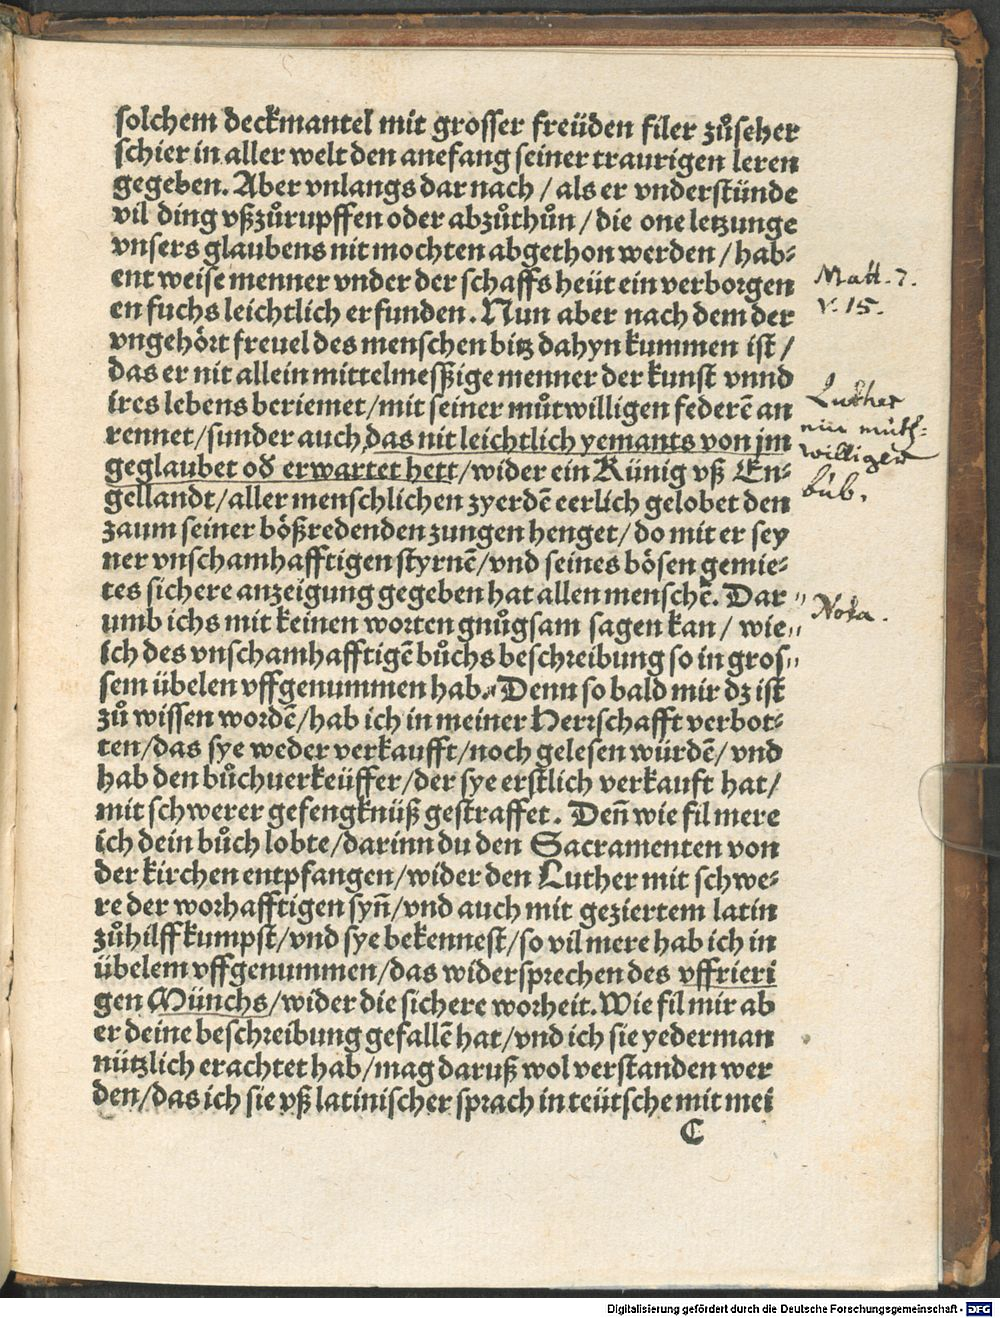 solchem deckmantel mit grosser freüden filer zůseher
schier in aller welt den anefang seiner traurigen leren
gegeben. Aber vnlangs dar nach / als er vnderstünde
vil ding vßzůrupffen oder abzůthůn / die one letzunge
vnsers glaubens nit mochten abgethon werden / hab⸗
ent weise menner vnder der schaffs heüt ein verborgen
en fuchs leichtlich erfunden. Nun aber nach dem der
vngehört freuel des menschen bitz dahyn kummen ist /
das er nit allein mittelmessßige menner der kunst vnnd
ires lebens beriemet / mit seiner můtwilligen federē an
rennet / sunder auch das nit leichtlich yemants von jm
geglaubet oď erwartet hett / wider ein Künig vß En⸗
gellandt / aller menschlichen zyerdē eerlich gelobet den
zaum seiner bößredenden zungen henget / do mit er sey
ner vnschamhafftigen styrnē / vnd seines bösen gemie⸗
tes sichere anzeigung gegeben hat allen menschē. Dar
umb ichs mit keinen worten gnůgsam sagen kan / wie
ich des vnschamhafftigē bůchs beschreibung so in gros⸗
sem übelen vffgenummen hab. Denn so bald mir dz ist
zů wissen wordē / hab ich in meiner Herrschafft verbot⸗
ten / das sye weder verkaufft / noch gelesen würdē / vnd
hab den bůchuerkeüffer / der sye erstlich verkauft hat /
mit schwerer gefengknüß gestraffet. Deñ wie fil mere
ich dein bůch lobte / darinn du den Sacramenten von
der kirchen entpfangen / wider den Luther mit schwe⸗
re der worhafftigen syñ / vnd auch mit geziertem latin
zůhilff kumpst / vnd sye bekennest / so vil mere hab ich in
übelem vffgenummen / das widersprechen des vffrieri
gen Münchs / wider die sichere worheit. Wie fil mir ab
er deine beschreibung gefallē hat / vnd ich sie yederman
nützlich erachtet hab / mag daruß wol verstanden wer
den / das ich sie vß latinischer sprach in teütsche mit mei
C
Matt. 7.
v. 15.
Luther
ein muth⸗
williger
büb.
Nota.
Digitalisierung gefördert durch die Deutsche Forschungsgemeinschaft - DFG